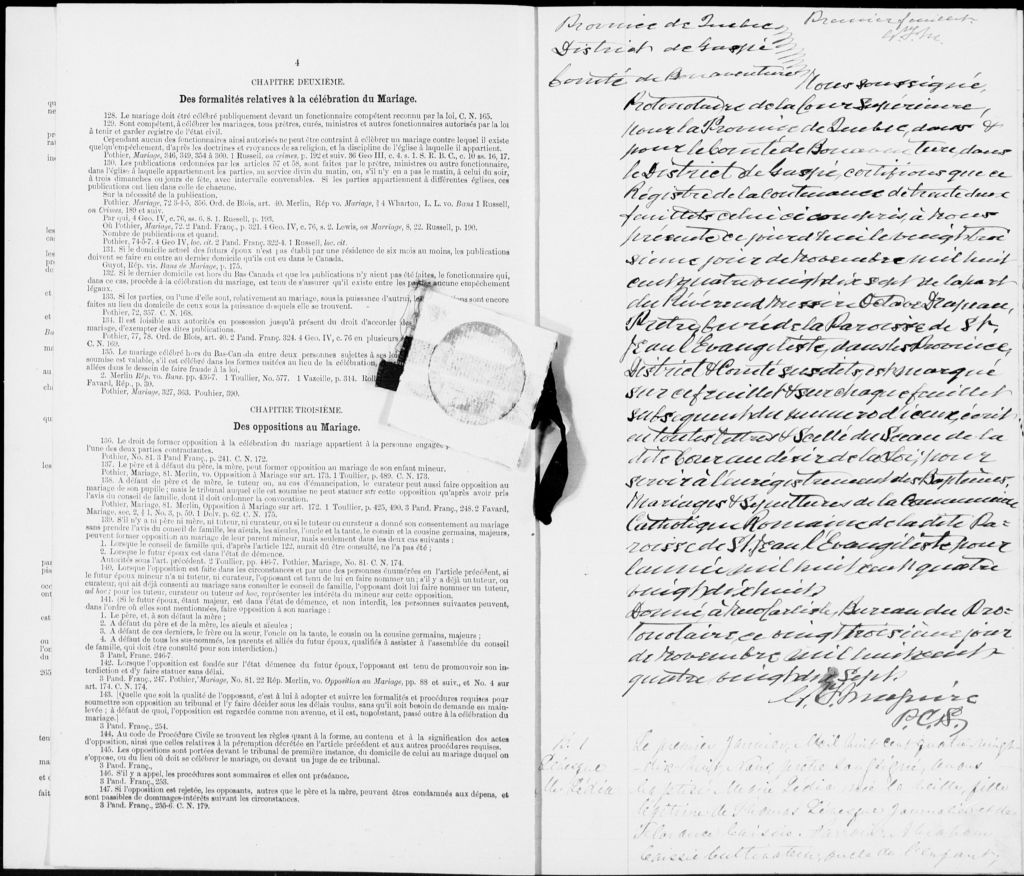 4
CHAPITRE DEUXIÈME.
Des formalités relatives à la célébration du Mariage.
128. Le mariage doit être célébré publiquement devant un fonctionnaire compétent reconnu par la loi. C. N. 165.
129. Sont compétent, à célébrer les mariages, tous prêtres, curés, ministres et autres fonctionnaires autorisés par la loi
à tenir et garder registre de l'état civil.
Cependant aucun des fonctionnaires ainsi autorisés ne peut être contraint à célébrer un mariage contre lequel il existe
quelqu'empêchement, d'après les doctrines et croyances de sa religion, et la discipline de l'église à laquelle il appartient.
Pothier, Mariage, 346, 349, 354 à 360. 1 Russell, on crimes, p. 192 et suiv. 86 Geo III, c. 4, s. 1. S. R. B. C., c. 10 ss. 16, 17.
130. Les publications ordonnées par les articles 57 et 58, sont faites par le prêtre, ministres ou autre fonctionnaire,
dans l'église à laquelle appartiennent les parties, au service divin du matin, ou, s'il n'y en a pas le matin, à celui du soir,
à trois dimanches ou jours de fête, avec intervalle convenables. Si les parties appartiennent à différentes églises, ces
publications ont lieu dans celle de chacune.
Sur la nécessité de la publication.
Pothier. Mariage, 72 3-4-5, 356. Ord. de Blois, art. 40. Merlin, Rép vo. Mariage, § 4 Whartou, L. L. vo. Bans 1 Russell,
on Crimes, 189 et suiv.
Par qui, 4 Geo. IV, c. 76, ss. 6, 8. 1. Russell, p. 193.
Où Pothier, Mariage, 72. 2 Pand. Franç., p. 321. 4 Geo. IV, c. 76, s. 2. Lewis, on Marriage, 8, 22. Russell, p. 190.
Nombre de publications et quand.
Pothier, 74-5-7. 4 Geo IV, loc. cit. 2 Pand. Franç. 322-4. 1 Russell, loc. cit.
131. Si le domicile actuel des futurs époux n'est pas établi par une résidence de six mois au moins, les publications
doivent se faire en outre au dernier domicile qu'ils ont eu dans le Canada.
Guyot, Rép. vis. Bans de Mariage, p. 175.
132. Si le dernier domicile est hors du Bas Canada et que les publications n'y aient pas été faites, le fonctionnaire qui,
dans ce cas, procède à la célébration du mariage, est tenu de s'assurer qu'il existe entre les parties aucune empêchement
légaux.
133. Si les parties, ou l'une d'elle sont, relativement au mariage, sous la puissance d'autrui, les sont encore
faites au lieu du domicile de ceux sous la puissance desquels elle se trouvent.
Pothier, 72, 357. C. N. 168.
134. Il est loisible aux autorités en possession jusqu'à présent du droit d'accorder des
mariage, d'exempter des dites publications.
Pothier, 77, 78. Ord. de Blois, art. 40. 2 Pand Franç. 324. 4 Geo. IV, c. 76 en plusieurs
C. N. 169.
135. Le mariage célébré hors du Bas-Canada entre deux personnes sujettes à ses lois
soumise est valable, s'il est célébré dans les formes usitées au lieu de la célébration,
allées dans le dessein de faire fraude à la loi.
2. Merlin Rép. vo. Bans. pp. 436-7. 1 Toullier, No. 577. 1 Vazeille, p. 314.
Favard, Rép., p. 30.
Pothier, Mariage, 327, 363. Pouhier, 390.
CHAPITRE TROISIÈME.
Des oppositions au Mariage.
136. Le droit de former opposition à la célébration du mariage appartient à la personne engagée
l'une des deux parties contractantes.
Pothier, No. 81. 3 Pand Franç., p. 241. C. N. 172.
137. Le père et à défaut du père, la mère, peut former opposition au mariage de son enfant mineur.
Pothier, Mariage, 81. Merlin, vo. Opposition à Mariage sur art. 173. 1 Toullier, p. 489. C. N. 173.
138. A défaut de père et de mère, le tuteur ou, au cas d'émancipation, le curateur peut aussi faire opposition au
mariage de son pupille ; mais le tribunal auquel elle est soumise ne peut statuer sur cette opposition qu'après avoir pris
l'avis du conseil de famille, dont il doit ordonner la convocation.
Pothier, Mariage, 81. Merlin, Opposition à Mariage sur art. 172. 1 Toullier, p. 425, 490, 3 Pand. Franç., 248. 2 Favard,
Mariage, sec. 2, § 1, No. 3, p. 50. 1 Delv. p. 62. C. N. 175.
139. S'il n'y a ni père ni mère, ni tuteur, ni curateur, ou si le tuteur ou curateur a donné son consentement au mariage
sans prendre l'avis du conseil de famille, les aïeuls, les aïeules, l'oncle et la tante, le cousin et la cousine germains, majeurs,
peuvent former opposition au mariage de leur parent mineur, mais seulement dans les deux cas suivants :
1. Lorsque le conseil de famille qui, d'après l'article 122, aurait dû être consulté, ne l'a pas été ;
2. Lorsque le futur époux est dans l'état de démence.
Autorités sous l'art. précédent. 2 Toullier, pp. 446-7. Pothier, Mariage, No. 81. C. N. 174.
140. Lorsque l'opposition est faite dans les circonstances et par une des personnes énumérées en l'article précédent, si
le futur époux mineur n'a ni tuteur, ni curateur, l'opposant est tenu de lui en faire nommer un ; s'il y a déjà un tuteur, ou
curateur, qui ait déjà consenti au mariage sans consulter le conseil de famille, l'opposant doit lui faire nommer un tuteur,
ad hoc ; pour les tuteur, curateur ou tuteur ad hoc, représenter les intérêts du mineur sur cette opposition.
141. (Si le futur époux, étant majeur, est dans l'état de démence, et non interdit, les personnes suivantes peuvent,
dans l'ordre où elles sont mentionnées, faire opposition à son mariage :
1. Le père, et, à son défaut la mère ;
2. A défaut du père et de la mère, les aïeuls et aïeules ;
3. A défaut de ces derniers, le frère ou la sœur, l'oncle ou la tante, le cousin ou la cousine germains, majeurs ;
4. A défaut de tous les sus-nommés, les parents et alliés du futur époux, qualifiés à assister à l'assemblée du conseil
de famille, qui doit être consulté pour son interdiction.)
3 Pand. Franc. 246-7.
142. Lorsque l'opposition est fondée sur l'état démence du futur époux, l'opposant est tenu de promouvoir son in-
terdiction et d'y faire statuer sans délai.
3 Pand. Franç., 247. Pothier, Mariage, No. 81. 22 Rép. Merlin, vo. Opposition au Mariage, pp. 88 et suiv., et No. 4 sur
art. 174. C. N. 174.
143. [Quelle que soit la qualité de l'opposant, c'est à lui à adopter et suivre les formalités et procédures requises pour
soumettre son opposition au tribunal et l'y faire décider sous les délais voulus, sans qu'il soit besoin de demande en main-
levée ; à défaut de quoi, l'opposition est regardée comme non avenue, et il est, nonobstant, passé outre à la célébration du
mariage.]
3 Pand. Franç., 254.
144. Au code de Procédure Civile se trouvent les règles quant à la forme, au contenu et à la signification des actes
d'opposition, ainsi que celles relatives à la péremption décrétée en l'article précédent et aux autres procédures requises.
145. Les oppositions sont portées devant le tribunal de première instance, du domicile de celui au mariage duquel on
s'oppose, ou du lieu où doit se célébrer le mariage, ou devant un juge de ce tribunal.
3 Pand. Franç.,
146. S'il y a appel, les procédures sont sommaires et elles ont préséance.
3 Pand. Franç., 253.
147. Si l'opposition est rejetée, les opposants, autres que le père et la mère, peuvent être condamnés aux dépens, et
sont passibles de dommages-intérêts suivant les circonstances.
3 Pand. Franç., 255-6. C. N. 179.
Premier feuillet
Province de Quebec
District de Gaspé
Comté de Bonaventure
Nous soussigné,
Protonotaire de la Cour Supérieure,
pour la Province de Quebec, dans &
pour le Comté de Bonaventure dans
le District de Gaspé, certifions que ce
Régistre de la contenance de trente deux
feuillets celui ci compris, à nous
présenté ce jourd'hui le vingt troi
sième jour de novembre mil huit
cent quatre vingt dix sept de la part
du Révérend Messire Octave Drapeau,
Prêtre, Curé de la Paroisse de St.
Jean l'Evangéliste, dans les Province,
District & Comté susdits, est marqué
sur ce feuillet & sur chaque feuillet
subséquent du numéro d'iceux, écrit
en toutes lettres & scellé du Sceau de la
dite Cour au désir de la Loi, pour
servir à l'enrégistrement des Baptêmes,
Mariages & Sépultures de la Communion
Catholique Romaine de la dite Pa-
roisse de St. Jean l'Evangéliste pour
l'année mil huit cent quatre
vingt dix huit
Donné à New Carlisle, Bureau du Pro-
tonotaire, ce vingt troisième jour
de novembre mil huit cent
quatre vingt dix sept.
P. C. S.
Le premier Janvier, Mil huit cent quatre-vingt-
dix huit Nous, prêtre soussigné, avons
baptisé Marie Lédia née la veille, fille
légitime de Thomas